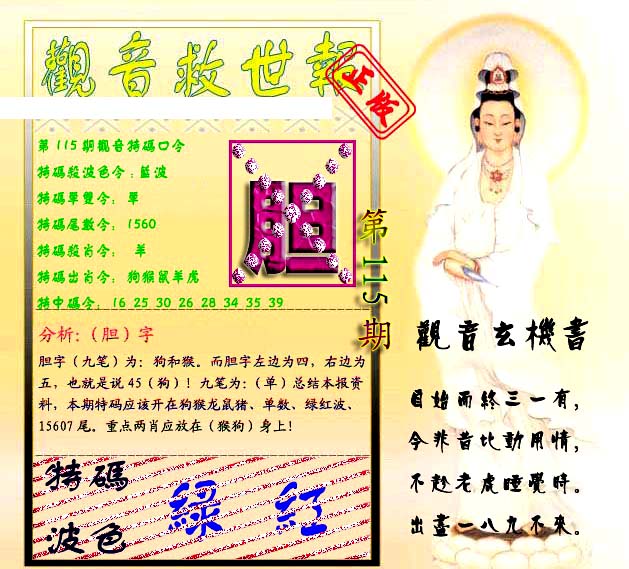 觀音救世報
正版
第115期觀音特碼口令
特碼殺波色令:藍波
特碼單雙令: 單
特碼尾數令: 1560
特碼殺肖令: 羊
特碼出肖令: 狗猴鼠羊虎
特中碼令: 16 25 30 26 28 34 35 39
胆
第115期
分析:（胆）字
胆字（九笔）为：狗和猴。而胆字左边为四，右边为
五，也就是说 45（狗）！九笔为:（单）总结本报资
料，本期特码应该开在狗猴龙鼠猪、单数、绿红波、
15607 尾。重点两肖应放在（猴狗）身上！
特碼
波色
綠 紅
觀音玄機書
目始而終三一有，
令非昔比動用情，
不趁老虎睡覺時。
出盡一八九不來。